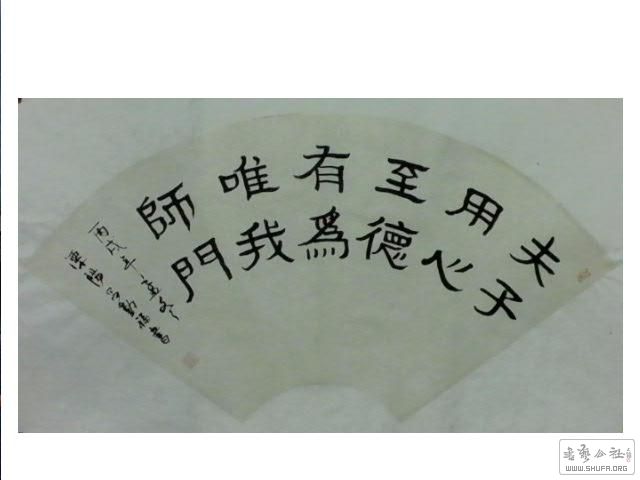 夫子
用心
至德
有爲
唯我
師門
丙戌年
溧陽 書
书艺公社
WWW.SHUFA.ORG